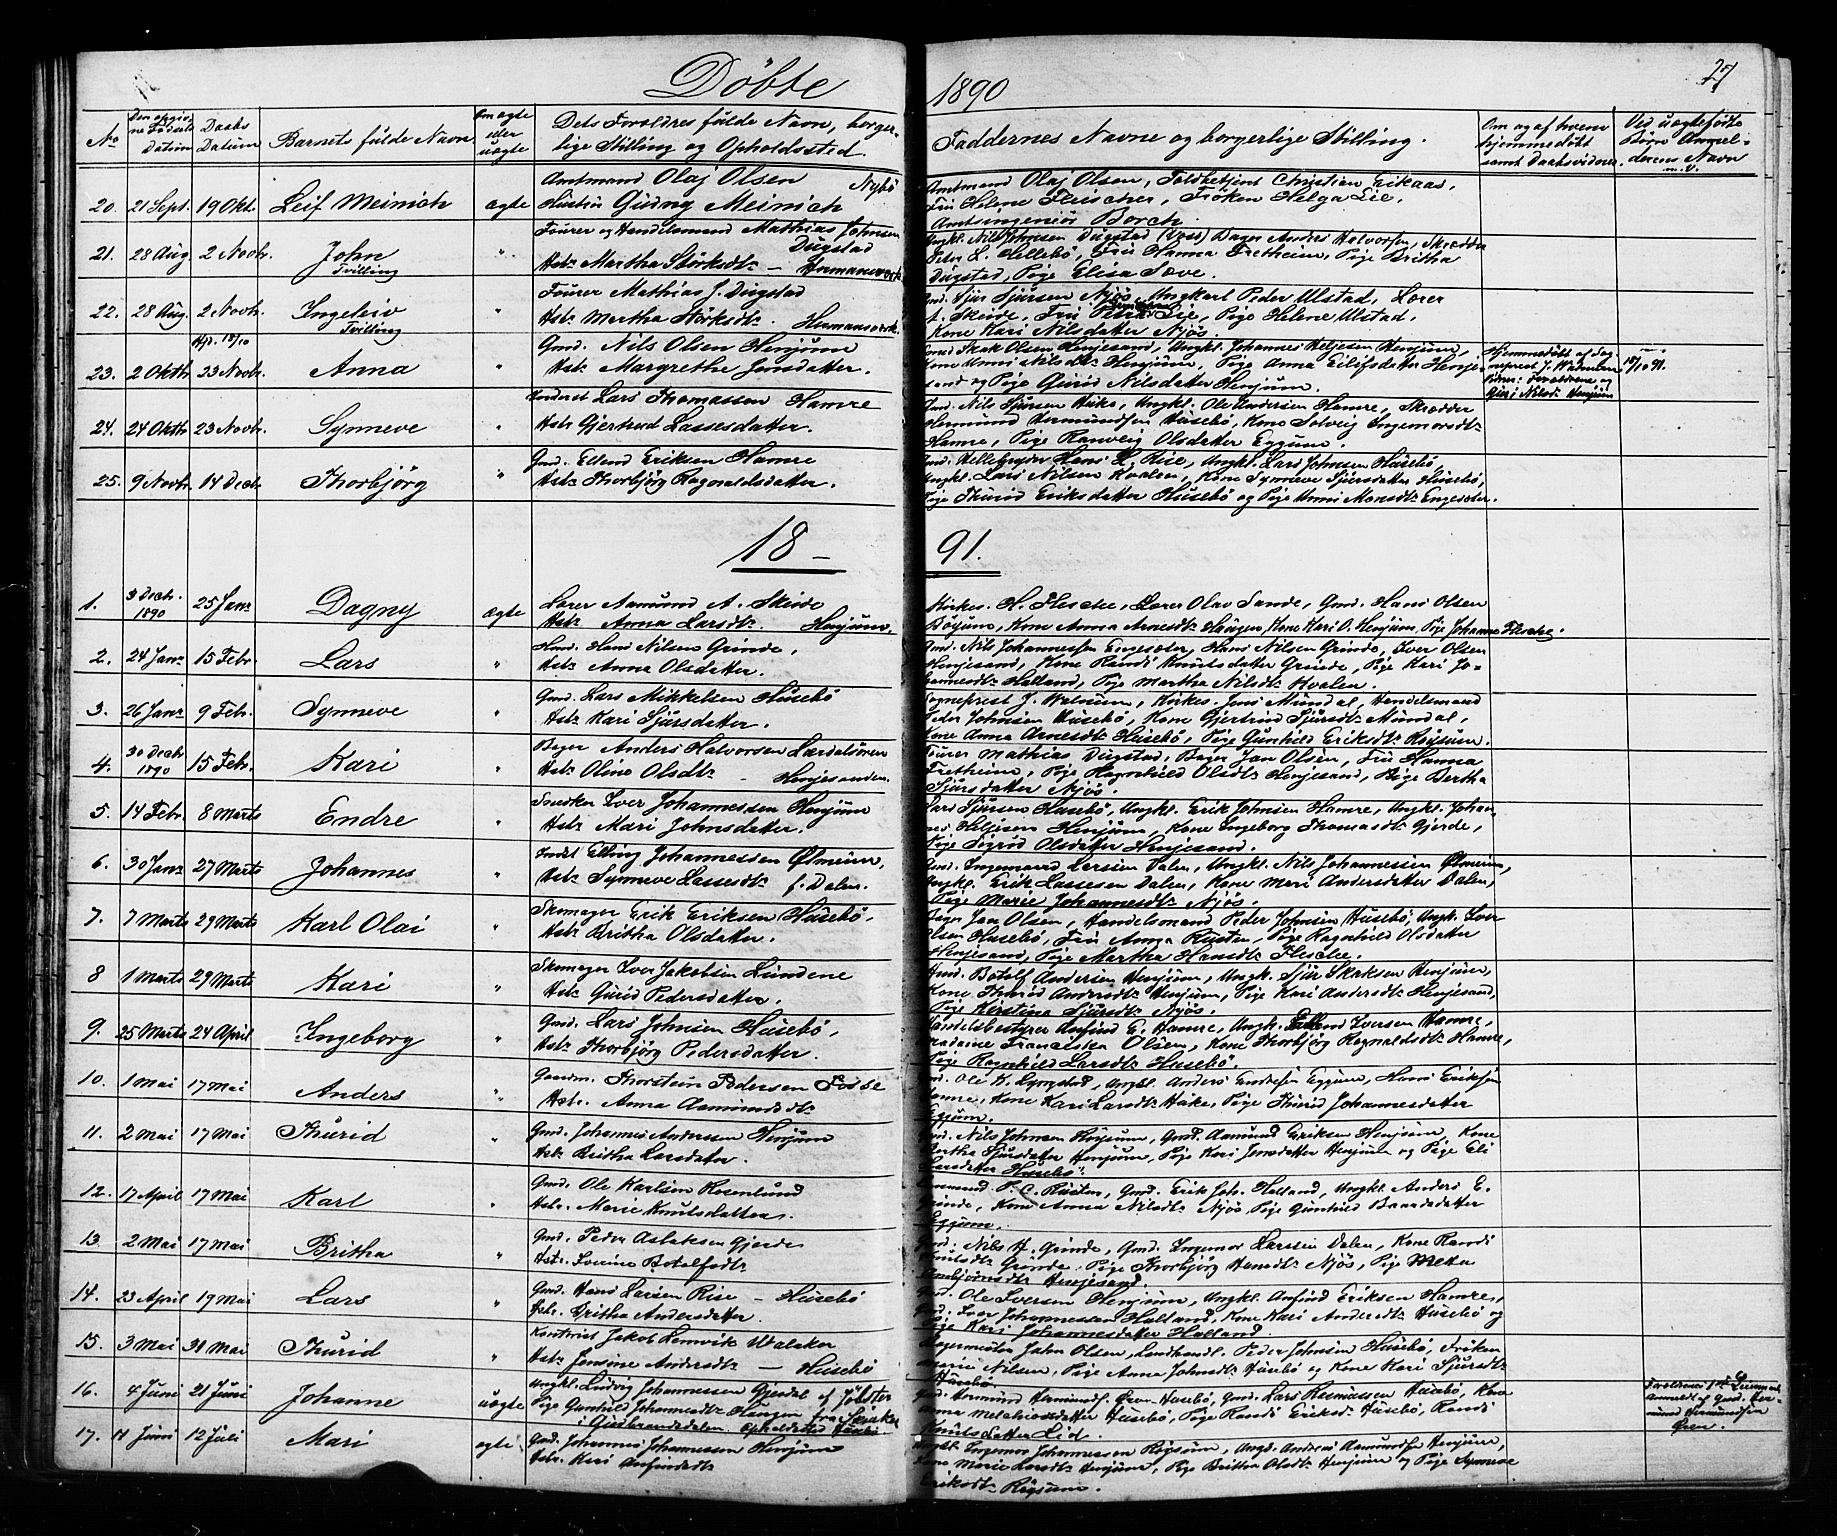 Döbte 1890
27
No
Den opgiv-
ne Födsels
Datum
Daabs
Datum
Barnets fulde Navn
Om ægte
eller
uægte
Dets Forældres fulde Navn, borger-
lige Stilling og Opholdssted.
Faddernes Navne og borgerlige Stilling.
Om og af hvem
hjemmedöbt
samt Daabsvidner
Ved uægtefödte
Börn Anmel-
derens Navn
m.V.
20. 21 Sept. 19 Okt. Leif Meinich ægte
Amtmand Olaj Olsen Nybö
Hustru Gudny Meinich
Amtmand Olaj Olsen, Toldbetjent Christian Eikaas,
Fru Helene Fleischer, Fröken Helga Lie,
Amtsingeniör Borch.
21. 28 Aug. 2 Novbr. John
Tvilling
Fourer og Handelsmand Mathias Johnsen
Dugstad
Hstr. Martha Störksdtr. – Hermansverk
Ungkl. Nils Johnsen Dugstad (Voss) Bager Anders Halvorsen, Skrædder
Peter L. Hellebö, Fru Hanna Fretheim, Pige Britha
Dugstad, Pige Elisa Sæve.
22. 28 Aug. 2 Novbr. Ingeleiv
Tvilling
Fourer Mathias J. Dugstad
Hstr. Martha Störksdtr. Hermansverk.
Gmd. Sjur Sjursen Njös, Ungkarl Peder Ulstad, Lærer
A. Skeide, Fru Petra Lie, Pige Helene Ulstad,
Kone Kari Nilsdatter Njös.
Hjd. 18/10
23. 2 Oktbr. 23 Novbr. Anna
Gmd. Nils Olsen Henjum
Hstr. Margrethe Jensdatter.
Olsen Henjesand, Ungkl. Johannes Heljesen Henjum,
Henjum, Pige Anna Eilifsdatter Henje-
sand og Pige Gurid Nilsdatter Henjum.
Hjemmedöbt af Sog-
neprest J. Walnum
Vidner: Forældrene og
Guri Nilsdr. Henjum
18/10 91.
24. 24 Oktbr. 23 Novbr. Synneve
Inderst Lars Thomassen Hamre
Hstr Gjertrud Lassesdatter.
Gmd. Nils Sjursen Hake, Ungkl. Ole Andersen Hamre, Skrædder
Hermund Hermundsen Husebö, Kone Solveig Ingemorsdtr.
Hamre, Pige Ranveig Olsdatter Eggum.
25. 9 Novbr. 14 Decbr. Thorbjörg
Gmd. Ellend Eriksen Hamre
Hstr. Thorbjörg Ragnaldsdatter.
Hans L. Rise, Ungkl. Lars Johnsen Husebö,
Ungkl. Lars Nilsen Kvalen, Kone Synneve Sjursdatter Husebö,
Pige Thurid Eriksdatter Husebö og Pige Anni Monsdtr. Engesæter.
18 – 91.
1. 3 Decbr.
1890
25 Janr. Dagny ægte
Lærer Aamund A. Skeide
Hstr. Anna Larsdtr. Henjum.
Kirkes. H. Flesche, Lærer Olav Sande, Gmd. Hans Olsen
Böyum, Kone Anna Arnesdtr. Haugen, Kone Kari O. Henjum, Pige Johanne Flesche.
2. 24 Janr 15 Febr. Lars
Hmd. Hans Nilsen Grinde,
Hstr. Anna Olsdatter.
Gmd. Nils Johannessen Engesæter, Hans Nilsen Grinde, Iver Olsen
Henjesand, Kone Randi Knutsdatter Grinde, Pige Kari Jo-
hannesdtr Halland, Pige Martha Nilsdtr. Kvalen.
3. 26 Janr 9 Febr. Synneve
Gmd. Lars Mikkelsen Husebö
Hstr Kari Sjursdatter.
Sogneprest J. Walnum, Kirkes. Jens Mundal, Handelsmand
Peder Johnsen Husebö, Kone Gjertrud Sjursdtr. Mundal,
Kone Anna Arnesdtr. Husebö, Pige Gunhild Eriksdtr. Röysum.
4. 30 Decbr
1890
15 Febr. Kari
Bager Anders Halvorsen Lærdalsören
Hstr. Oline Olsdtr. – Henjesanden.
Fourer Mathias Dugstad, Bager Jan Olsen, Fru Hanna
Fretheim, Pige Ragnhild Olsdtr. Henjesand, Pige Bertha
Sjursdatter Njös.
5. 14 Febr. 8 Marts Endre
Snedker Iver Johannessen Henjum
Hstr. Mari Johnsdatter.
Lars Sjursen Husebö, Ungkl. Erik Johnsen Hamre, Ungkl. Johan-
nes Heljesen Henjum, Kone Ingeborg Thomasdtr. Gjerde,
Pige Sigrid Olsdatter Henjesand.
6. 30 Janr 27 Marts Johannes
Indst Elling Johannessen Ölmeim,
Hstr. Synneve Lassesdtr. f. Dalen.
Gmd. Ingemor Larsen Dalen, Ungkl. Nils Johannessen Ölmeim,
Ungkl. Erik Lassesen Dalen, Kone Mari Andersdatter Dalen,
Pige Marie Johannesdtr. Njös.
7. 7 Marts 29 Marts Karl Olai
Skomager Erik Eriksen Husebö,
Hstr Britha Olsdatter.
Bager Jan Olsen, Handelsmand Peder Johnsen Husebö, Ungk. Iver
Olsen Husebö, Fru Anna Rusten, Pige Ragnhild Olsdatter
Henjesand, Pige Martha Hansdtr. Flesche.
8 1 Marts 29 Marts Kari
Skomager Iver Jakobsen Lundene
Hstr. Gurid Pedersdatter.
Gmd. Botolf Andersen Henjum, Ungk. Sjur Henjum,
Kone Thurid Andersdtr. Henjum, Pige Kari Andersdtr. Henjesand,
Pige Kirstina Sjursdtr. Njös.
9. 25 Marts 24 April Ingeborg
Gmd. Lars Johnsen Husebö,
Hstr. Thorbjörg Pedersdatter.
Handelsbestyrer Anfind E. Hamre, Ungk. Ellend Iversen Hamre,
Madame Franciska Olsen, Kone Thorbjörg Ragnaldsdtr. Hamre,
Pige Ragnhild Larsdtr. Husebö.
10. 1 Mai 17 Mai Anders
Gaardm. Thorstein Pedersen Fosse
Hstr. Anna Aamundsdtr.
Gmd. Ole K. Lyngstad, Ungkl. Anders Endresen Eggum, Hans Eriksen
Hamre, Kone Kari Larsdtr. Hake, Pige Thurid Johannesdatter
Eggum.
11. 2 Mai 17 Mai Thurid
Gmd. Johannes Anderssen Henjum
Hstr. Britha Larsdatter.
Gmd. Nils Johnsen Röysum, Gmd. Aamund Eriksen Henjum, Kone
Bertha Sjursdatter Henjum, Pige Kari Jensdatter Henjum og Pige Eli
Larsdatter Husebö.
12. 17 April 17 Mai Karl
Gmd. Ole Karlsen Rosenlund
Hstr. Marie Knutsdatter.
P. C. Rusten, Gmd. Erik Joh. Halland, Ungkl. Anders E.
Grinde, Kone Anna Nilsdtr. Njös, Pige Gunhild Baardsdatter
Eggum.
13. 2 Mai 17 Mai Britha
Gmd. Peder Aslaksen Gjerde
Hstr. Lovine Botolfsdtr.
Gmd. Nils H. Grinde, Gmd. Ingemor Larssen Dalen, Kone Randi
Knutsdtr. Grinde, Pige Thorbjörg Hansdtr. Njös, Pige Metha
Henjesand.
14. 23 April 17 Mai Lars
Gmd. Hans Larsen Rise – Husebö
Hstr. Britha Andersdatter.
Gmd. Ole Iversen Henjum, Ungkl. Anfind Eriksen Hamre,
Gmd. Iver Johannessen Halland, Kone Kari Andersdtr. Husebö og
Pige Kari Johannesdatter Halland.
15. 3 Mai 31 Mai Thurid
Kontorist Jakob Lemvik Walaker
Hstr. Jensine Andersdtr. – Husebö
Bagermester John Olsen, Landhandl. Peder Johnsen Husebö, Fröken
Marie Nilsen, Pige Anna Johnsdtr. Husebö og Kone Kari Sjursdtr.
Husebö
16. 4 Juni 21 Juni Johanne uægte
Ungkl. Ludvig Johannessen Gjesdal af Jölster
Pige Gunhild Johannesdtr. Haugen fra
i Gudbrandsdalen. Opholdssted Husebö.
Gmd. Hermund Hermundsen Husebö, Gmd. Lars Rasmussen Husebö, Kone
Anna Melchiorsdatter Husebö, Pige Randi Eriksdtr. Husebö, Randi
Knutsdatter Lid.
Forældrenes 1ste
anmeldt af Gmd. Her-
mund Hermundsen
17. 11 Juni 12 Juli Mari ægte
Gmd. Johannes Johannessen Henjum
Hstr. Kari Anfindsdtr.
Ungkl. Ingemor Johannessen Röysum, Ungk. Andreas Aamundsen Henjum,
Kone Marie Larsdtr. Henjum, Pige Britha Olsdtr. Henjum og Pige Synneve
Eriksdtr. Röysum.